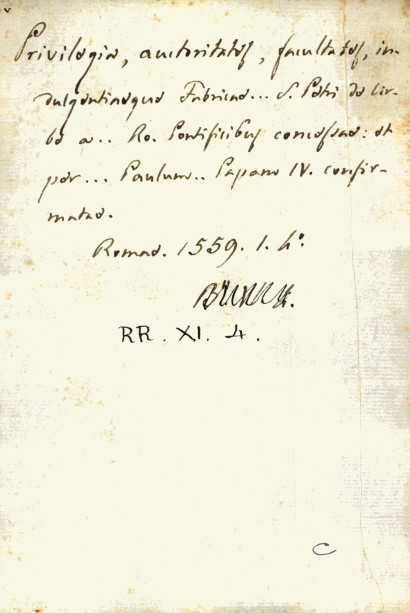 Privilegia, auctoritates, facultates, in-
dulgentiaeque Fabricae... S. Petri de Ur-
be a.. Ro. Pontificibus concessae: et
per... Paulum.. Papam IV. confir-
matae.
Romae. 1559. 1. h°.
RR. XI. 4.
C